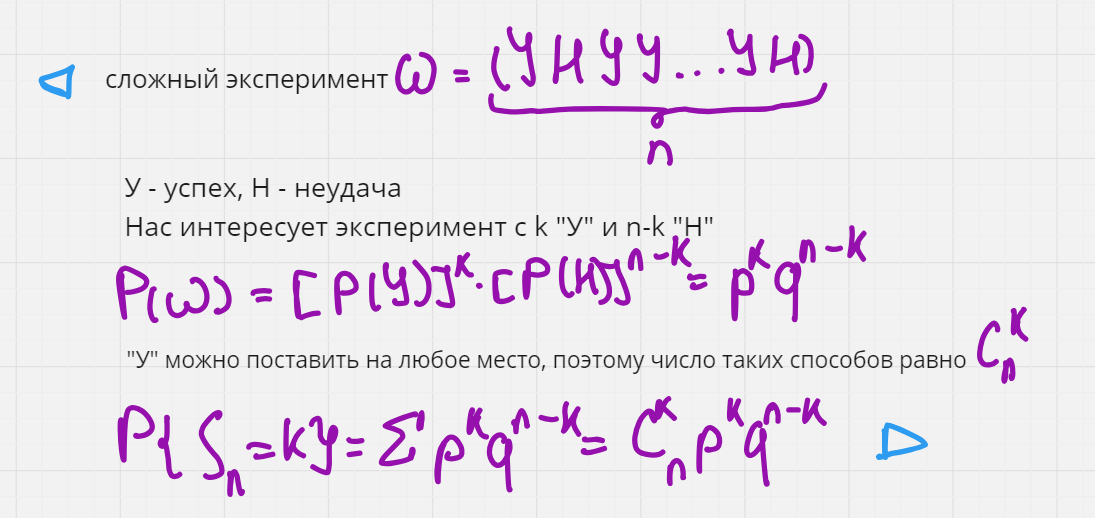 сложный эксперимент ω = (УНУУ...УН)
n
У - успех, Н - неудача
Нас интересует эксперимент с k "У" и n-k "Н"
P(ω) = [P(У)]^k · [P(Н)]^{n-k} = p^k q^{n-k}
"У" можно поставить на любое место, поэтому число таких способов равно C_n^k
P{S_n = k} = Σ p^k q^{n-k} = C_n^k p^k q^{n-k}